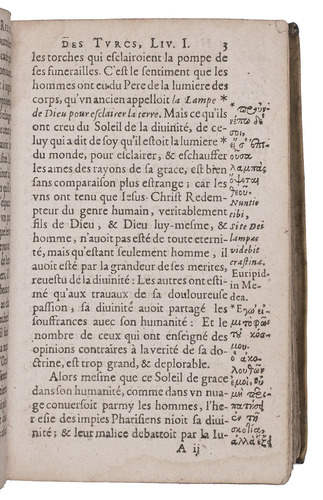 DES TVRCS, LIV. I. 3
les torches qui esclairoient la pompe de
ses funerailles. C'est le sentiment que les
hommes ont eu du Pere de la lumiere des
corps, qu'vn ancien appelloit la Lampe
de Dieu pour esclairer la terre. Mais ce qu'ils
ont creu du Soleil de la diuinité, de ce-
luy qui a dit de soy qu'il estoit la lumiere *
du monde, pour esclairer, & eschauffer
les ames des rayons de sa grace, est bien
sans comparaison plus estrange; car les
vns ont tenu que Iesus-Christ Redem-
pteur du genre humain, veritablement
fils de Dieu, & Dieu luy-mesme, &
homme, n'auoit pas esté de toute eterni-
té, mais qu'estant seulement homme, il
auoit esté par la grandeur de ses merites,
reuestu de la diuinité: Les autres ont esti-
mé qu'aux trauaux de sa douloureuse
passion, sa diuinité auoit partagé les
souffrances auec son humanité: Et le
nombre de ceux qui ont enseigné des
opinions contraires à la verité de sa do-
ctrine, est trop grand, & deplorable.
Alors mesme que ce Soleil de grace
dans son humanité, comme dans vn nua-
ge conuersoit parmy les hommes, l'he-
resie des impies Pharisiens nioit sa diui-
nité; & leur malice debattoit par la Iu-
A ij
λαμπὰς
Θεοῦ.
Nuntio
tibi,
site Dei
lampas
videbit
crastina.
Euripid.
in Me-
dea.
* Ἐγώ εἰ-
μι τὸ φῶς
τοῦ κόσ-
μου.
ὁ ἀκο-
λουθῶν
ἐμοί, οὐ
μὴ περι-
πατήσῃ
ἐν τῇ
σκοτίᾳ,